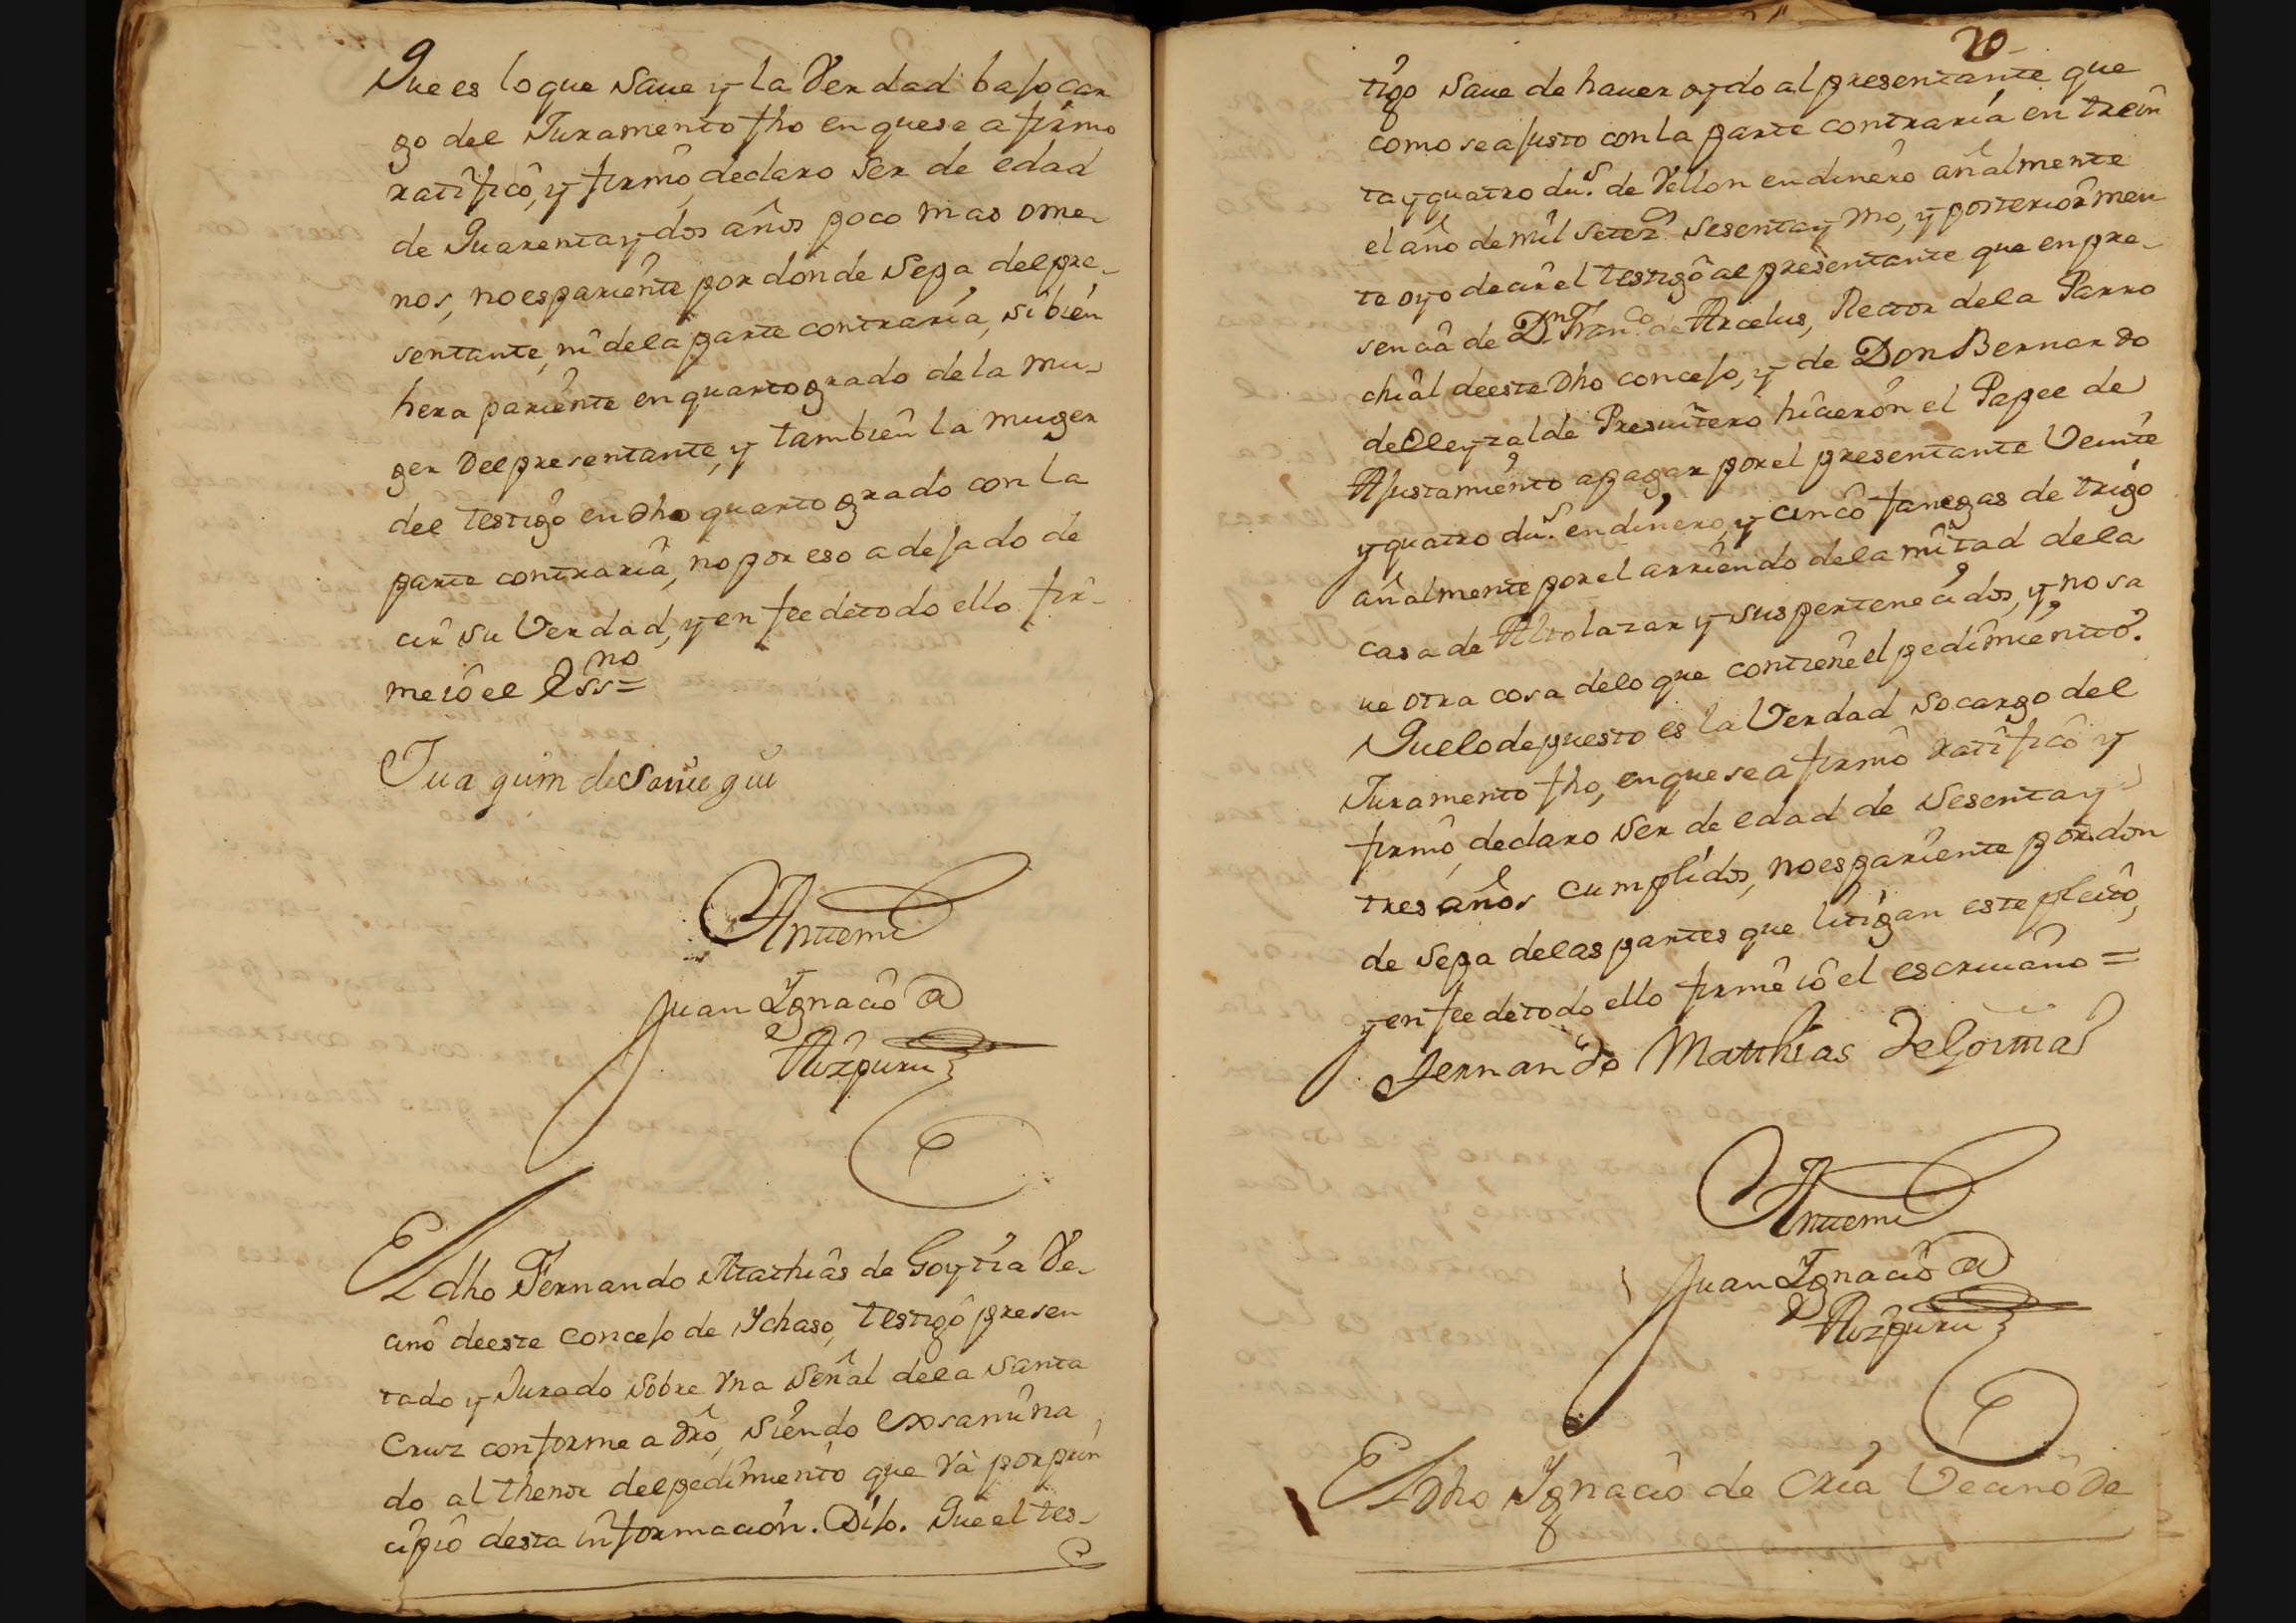 Que es lo que save y la Verdad bajo car
go del Juramento fho en que se afirmo
ratificó, y firmó, declaro ser de edad
de Quarenta y dos años poco mas o me-
nos, no es pariente por donde sepa del pre-
sentante, ni de la parte contraria, si bien
hera pariente en quarto grado de la mu-
ger del presentante, y tambien la muger
del testigo en dho quarto grado con la
parte contraria, no por eso a dejado de
cir su Verdad, y en fee de todo ello fir-
me io el Essno=
Juaquim de
Antemi
Juan Ignacio de
Aizpuru
El dho Fernando Mathias de Goytia Ve-
cino de este concejo de Ichaso, testigo presen
tado y Jurado sobre Vna señal de la santa
Cruz conforme a dro, siendo exsamina
do al thenor del pedimiento que Va por prin
cipio desta informacion. Dijo. Que el tes-
20
tigo save de haver oydo al presentante que
como se ajusto con la parte contraria en trein
ta y quatro dus. de Vellon en dinero añalmente
el año de mil setezs. sesenta y Vno, y posteriormen
te oyo decir el testigo al presentante que en pre-
sencia de Dn Franco de Arcelus, Rector de la Parro
chial de este Dho concejo, y de Don Bernardo
de Oleyzalde Presvitero hicieron el Papel de
Ajustamiento a pagar por el presentante Veinte
y quatro dus. en dinero, y cinco fanegas de trigo
añalmente por el arriendo de la mitad de la
casa de Alvolazar y sus pertenecidos, y no sa
ve otra cosa de lo que contiene el pedimiento.
Que lo depuesto es la Verdad so cargo del
Juramento fho, en que se afirmó ratificó y
firmó, declaro ser de edad de sesenta y
tres años cumplidos, no es pariente por don
de sepa de las partes que litigan este pleito,
y en fee de todo ello firmé io el escrivano =
Fernando Matthias de Goitia
Antemi
Juan Ignacio de
Aizpuru
El Dho Ignacio de Oria Vecino de